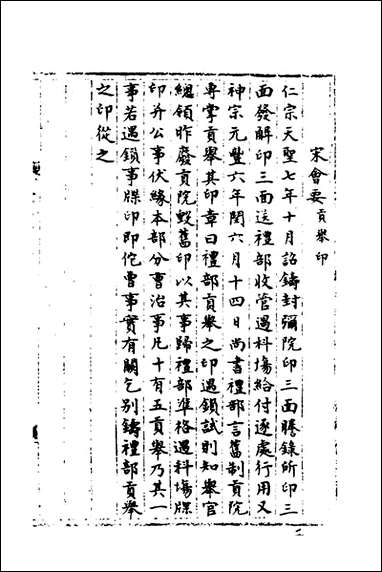 宋會要貢舉印
仁宗天聖七年十月詔鑄封彌院印三面謄錄所印三
面發解印三面送禮部收管遇科場給付逐處行用又
神宗元豐六年閏六月十四日尚書禮部言舊制貢院
專掌貢舉其印章曰禮部貢舉之印遇鎖試則知舉官
總領昨廢貢院毀舊印以其事歸禮部準格遇科場牒
印并公事伏緣本部分曹治事凡十有五貢舉乃其一
事若遇鎖事牒印即佗曹事實有關乞別鑄禮部貢舉
之印從之